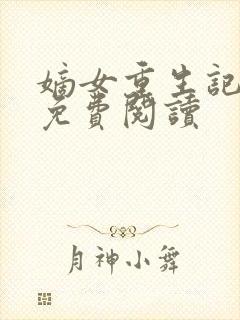 嫡女重生記
免費閱讀
月神小舞